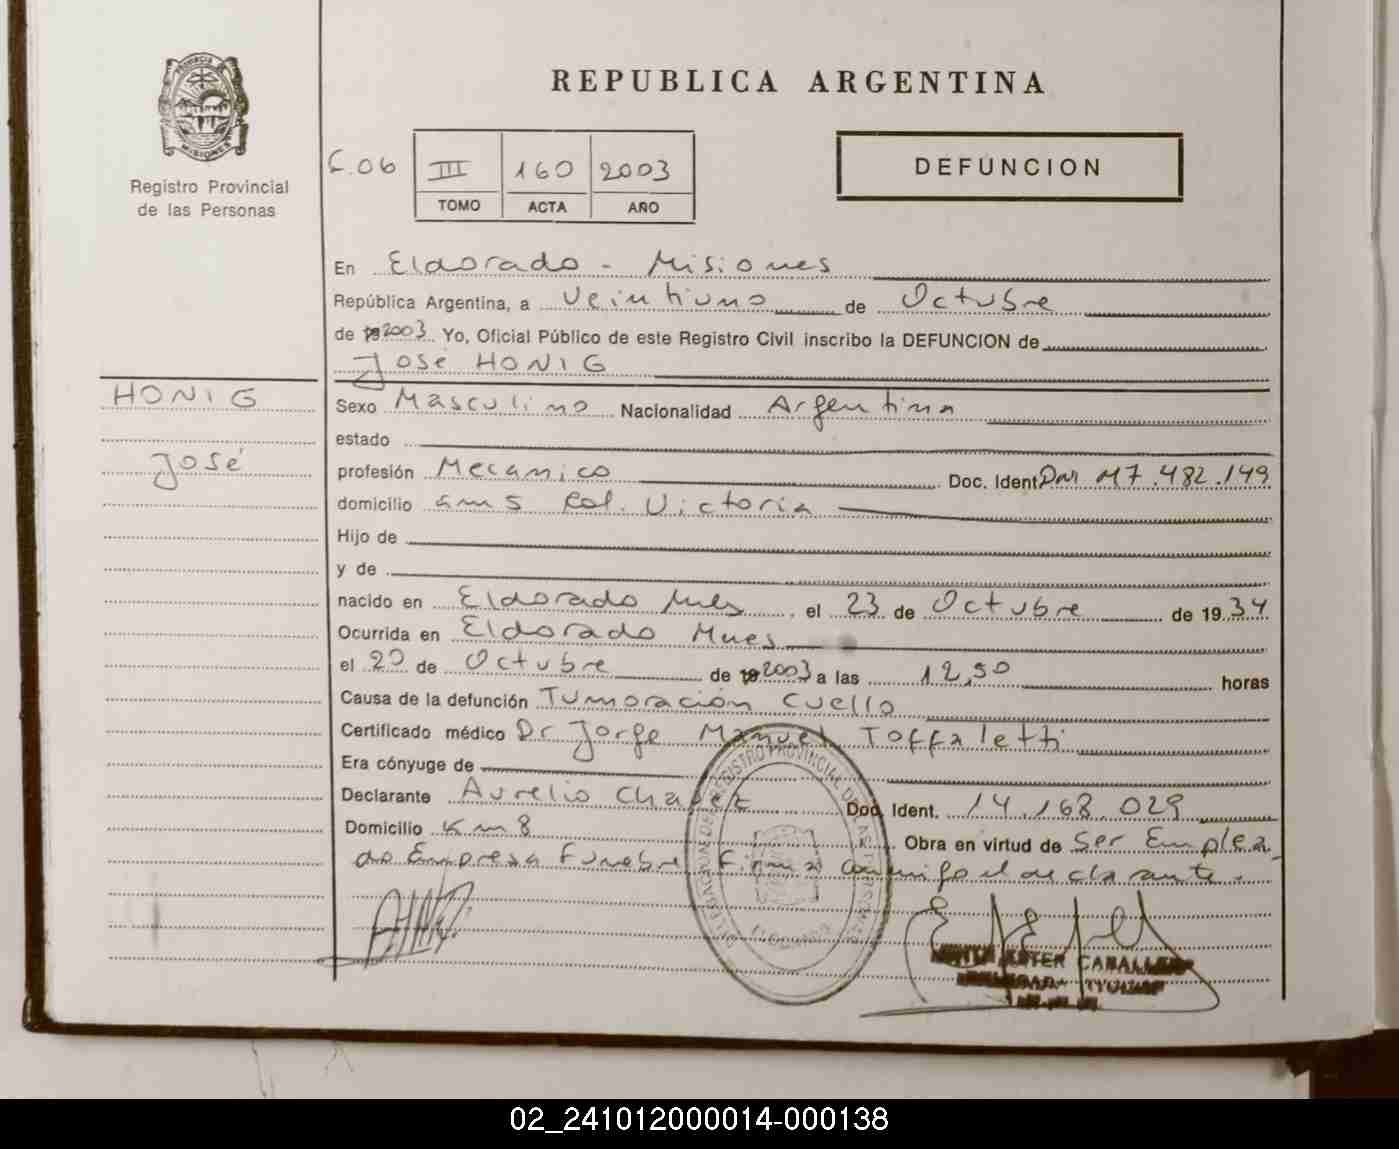 PROVINCIA DE
MISIONES
Registro Provincial
de las Personas
REPUBLICA ARGENTINA
F.06
III 160 2003
TOMO ACTA AÑO
DEFUNCION
En Eldorado - Misiones
República Argentina, a Veintiuno de Octubre
de 2003 Yo, Oficial Público de este Registro Civil inscribo la DEFUNCION de
José HONIG
HONIG
José
Sexo Masculino Nacionalidad Argentina
estado
profesión Mecanico Doc. Ident. DNI M7.482.149
domicilio Km 5 Col. Victoria
Hijo de
y de
nacido en Eldorado Mnes, el 23 de Octubre de 1934
Ocurrida en Eldorado Mnes
el 20 de Octubre de 2003 a las 12,50 horas
Causa de la defunción Tumoración Cuello
Certificado médico Dr Jorge Manuel Toffaletti
Era cónyuge de
Declarante Aurelio Chavez Doc. Ident. 14.168.029
Domicilio Km 8 Obra en virtud de Ser Emplea
do Empresa Funebre Firma conmigo el declarante.
DELEGACION DEL REGISTRO PROVINCIAL DE LAS PERSONAS
ELDORADO
ESTER CABALLERO
02_241012000014-000138